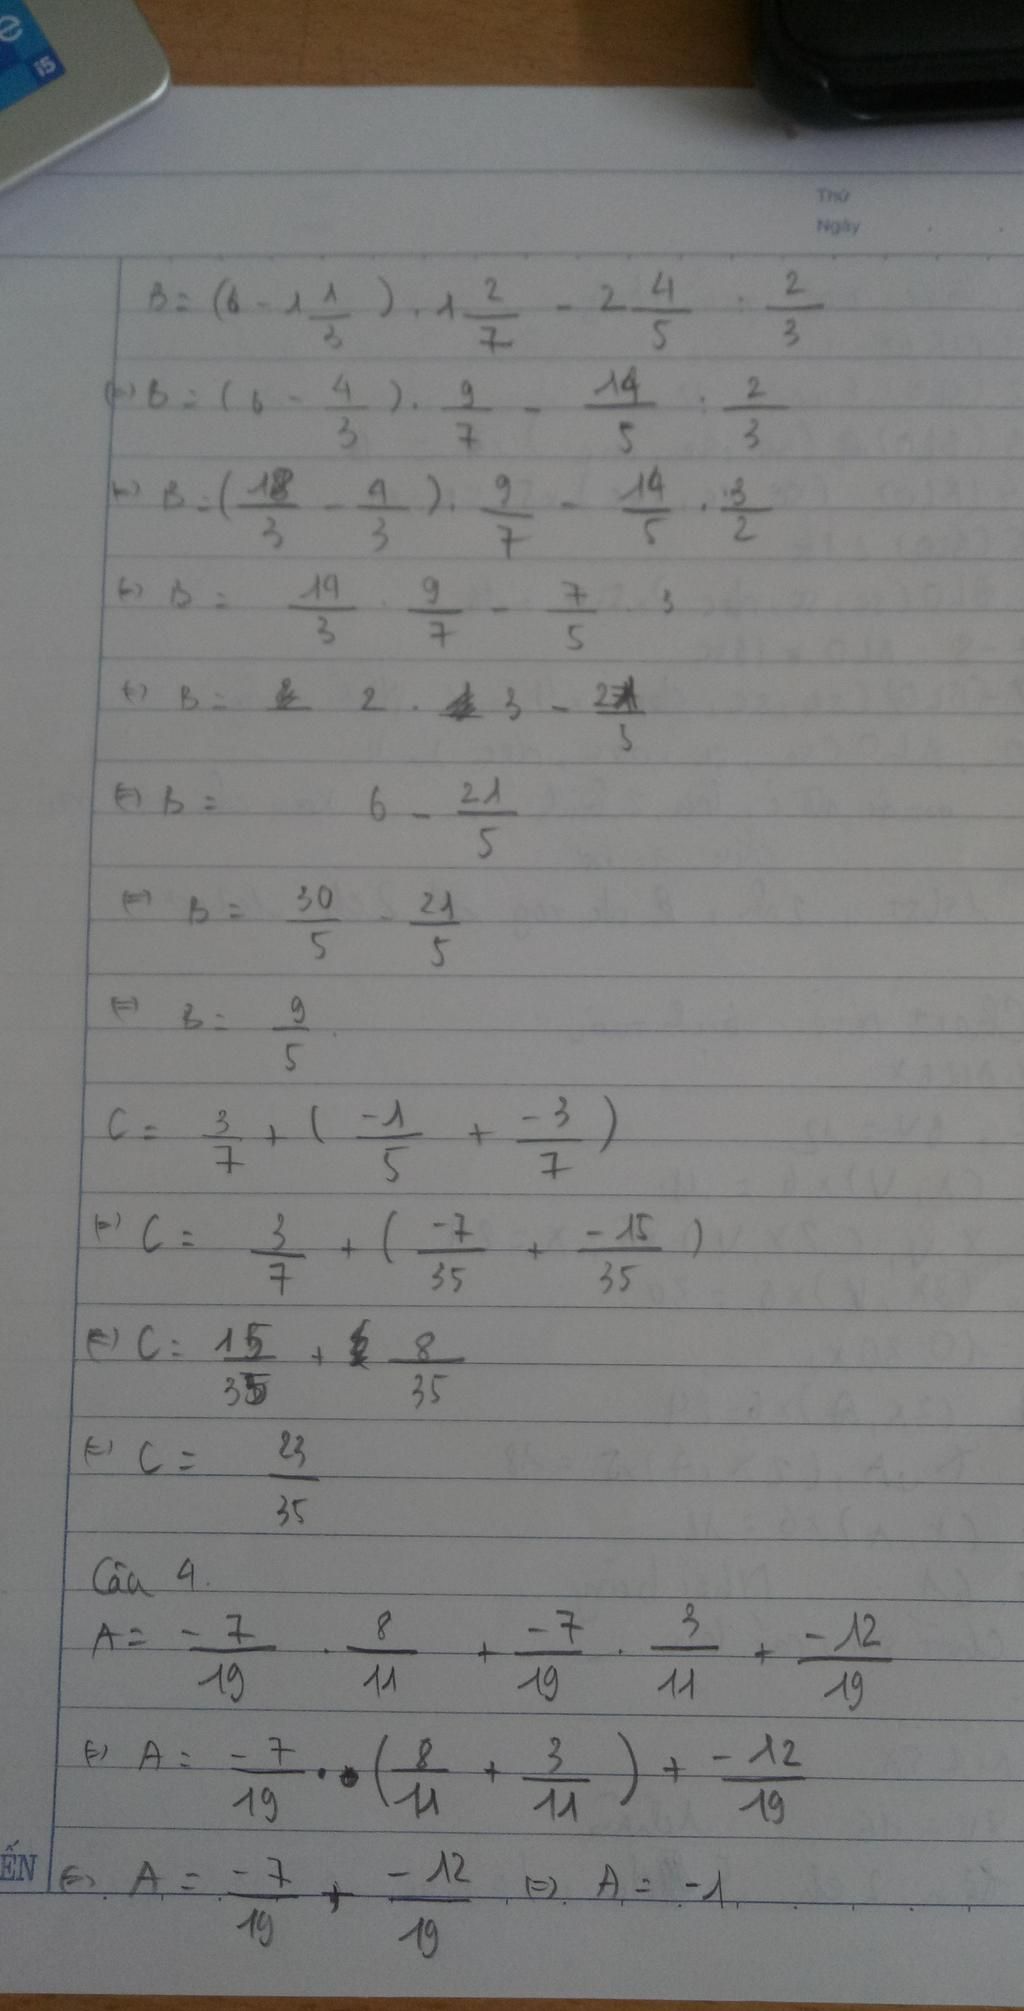 e
i5
Thứ
Ngày
B = (6 - 1 1/3) . 1 2/7 - 2 4/5 : 2/3
(=) B = (6 - 4/3) . 9/7 - 14/5 : 2/3
(=) B = (18/3 - 4/3) . 9/7 - 14/5 . 3/2
(=) B = 14/3 . 9/7 - 7/5 . 3
(=) B = 2 . 3 - 21/5
(=) B = 6 - 21/5
(=) B = 30/5 - 21/5
(=) B = 9/5
C = 3/7 + ( -1/5 + -3/7 )
(=) C = 3/7 + ( -7/35 + -15/35 )
(=) C = 15/35 + 8/35
(=) C = 23/35
Câu 4.
A = -7/19 . 8/11 + -7/19 . 3/11 + -12/19
(=) A = -7/19 . (8/11 + 3/11) + -12/19
ẾN
(=) A = -7/19 + -12/19 (=) A = -1